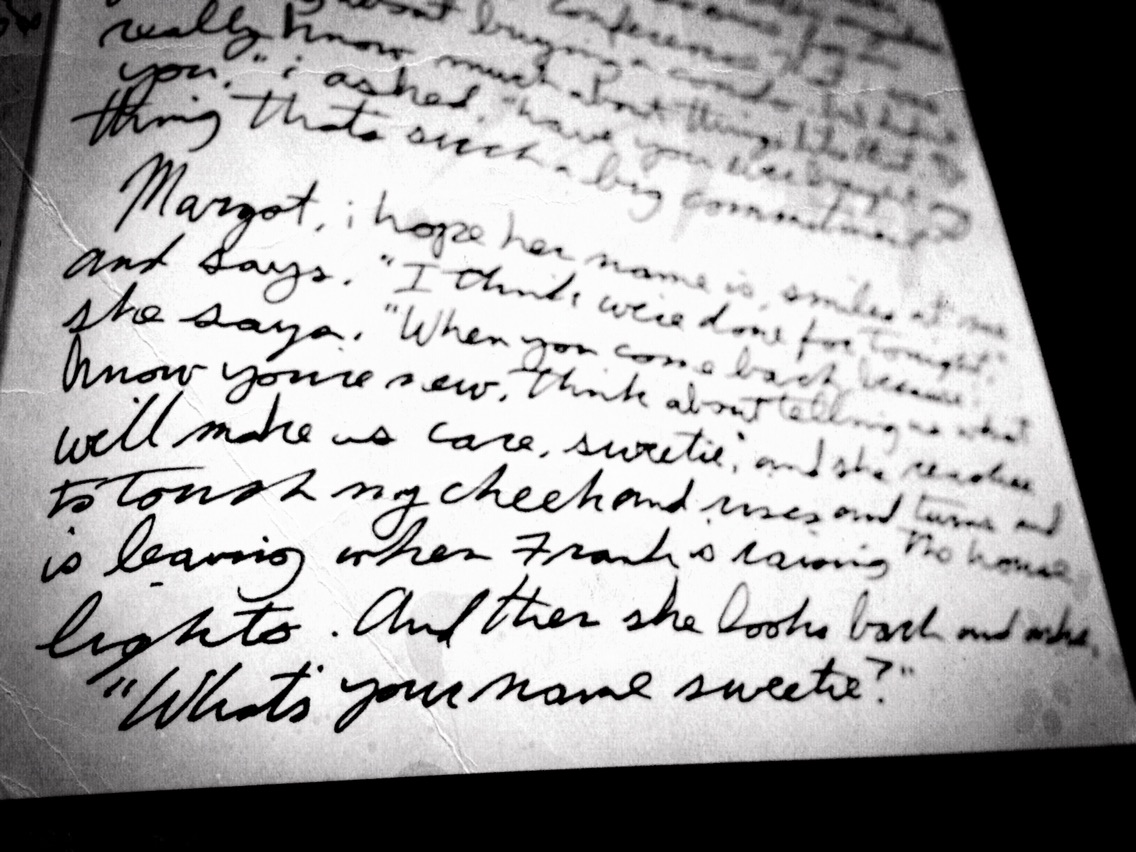 about buying a condo
really know much about things like that. "Do
you," i asked, "have you ever bought any
thing thats such a big commitment?"
Margot, i hope her name is, smiles at me
and says. "I think we're done for tonight."
she says. "When you come back, because i
know you're new, think about telling us what
will make us care, sweetie", and she reaches
to touch my cheek and rises and turns and
is leaving when Frank is raising the house
lights. And then she looks back and asks,
"What's your name sweetie?"